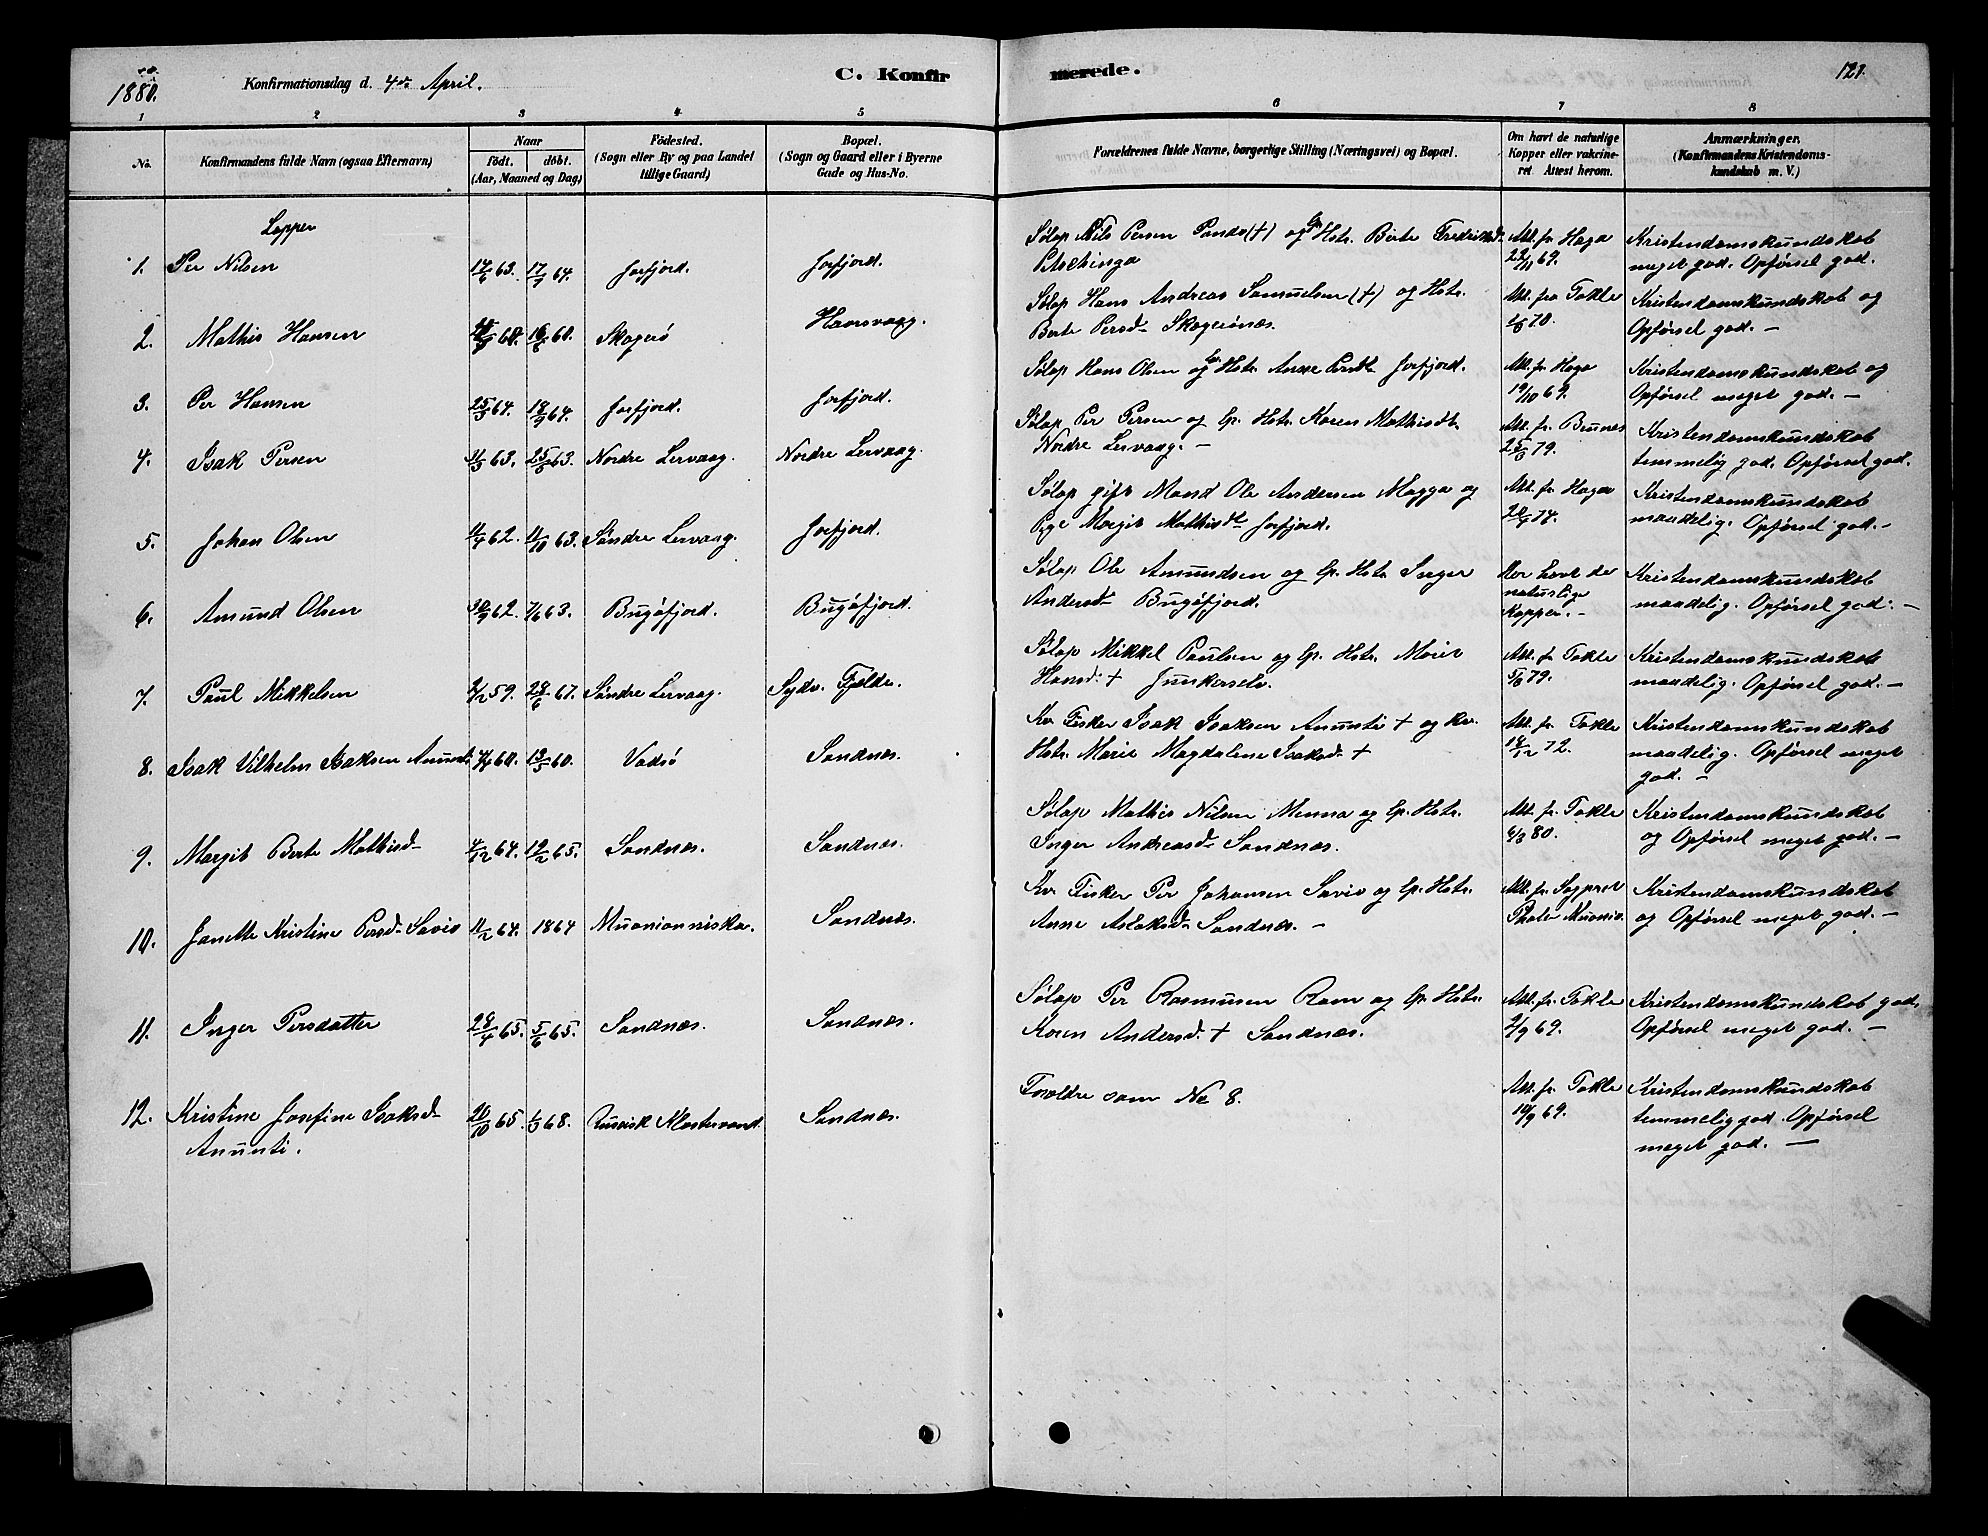 1880.
Konfirmationsdag d. 4de April.
C. Konfirmerede.
121.
1 2 3 4 5 6 7 8
No.
Konfirmandens fulde Navn (ogsaa Efternavn)
Naar
født. døbt.
(Aar, Maaned og Dag)
Fødested.
(Sogn eller By og paa Landet
tillige Gaard)
Bopæl.
(Sogn og Gaard eller i Byerne
Gade og Hus-No.
Forældrenes fulde Navne, borgerlige Stilling (Næringsvei) og Bopæl.
Om havt de naturlige
Kopper eller vakcine-
ret. Attest herom.
Anmærkninger.
(Konfirmandens Kristendoms-
kundskab m. V.)
Lapper
1. Per Nilsen 14/6 63. 17/7 64. Jarfjord. Jarfjord.
Sølap Nils Persen Panda (+) og lp Hstr. Berte Fredriksd.
Petschinga
Att. fr. Haga
22/11 69.
Kristendomskundskab
meget god. Opførsel god.
2. Mathis Hansen 60. 16/6 60. Skogerø
Sølap Hans Andreas Samuelsen (+) og Hstr.
Berte Persd. Skogerønæs.
Att. fra Takle
70.
Kristendomskundskab og
Opførsel god. –
3. Per Hansen 25/3 64. 18/9 64. Jarfjord. Jarfjord.
Sølap Hans Olsen og lp. Hstr. Anne Jarfjord.
Att. fr. Haga
19/10 69.
Kristendomskundskab og
Opførsel meget god. –
4. Isak Persen 11/3 63. 25/5 63. Nordre Lervaag. Nordre Lervaag.
Sølap Per Persen og lp. Hstr. Karen Mathisdt.
Nordre Lervaag. –
Att. fr. Brunæs
79.
Kristendomskundskab
temmelig god. Opførsel god.
5. Johan Olsen 62. 11/10 63. Søndre Lervaag. Jarfjord.
Sølap gift Mand Ole Andersen Magga og
Pige Margit Mathisdt. Jarfjord.
Att. fr. Haga
74.
Kristendomskundskab
maadelig. Opførsel god. –
6. Amund Olsen 30/9 62. 7/6 63. Bugøfjord. Bugøfjord.
Sølap Ole Amundsen og lp. Hstr. Inger
Andersdt. Bugøfjord.
Har havt de
naturlige
Kopper. –
Kristendomskundskab
maadelig. Opførsel god. –
7. Paul Mikkelsen 2/12 59. 28/6 67. Søndre Lervaag. Sydv. Fjelde.
Sølap Mikkel Paulsen og lp. Hstr. Marit
Hansd. + Junkerselv.
Att. fr. Takle
5/8 79.
Kristendomskundskab
maadelig. Opførsel god. –
8. Isak Vilhelm Isaksen Anunti 60. 13/5 60. Vadsø Sandnæs.
Kv. Fisker Isak Isaksen Anunti + og kv.
Hstr. Marie Magdalene Isaksd. +
Att. fr. Takle
18/12 72.
Kristendomskundskab
maadelig. Opførsel meget
god. –
9. Margit Berte Mathisd. 4/12 64. 19/2 65. Sandnæs. Sandnæs.
Sølap Mathis Nilsen Menna og lp. Hstr.
Inger Andreasd. Sandnæs.
Att. fr. Takle
6/3 80.
Kristendomskundskab
og Opførsel meget god. –
10. Janette Kristine Persd. Savio 11/2 64. 1864 Muonionniska. Sandnæs.
Kv. Fisker Per Johansen Savio og lp. Hstr.
Anne Aslaksd. Sandnæs. –
Att. fr.
Muonio.
Kristendomskundskab
og Opførsel meget god. –
11. Inger Persdatter 28/4 65. 5/6 65. Sandnæs. Sandnæs.
Sølap Per Rasmusen Ram og lp. Hstr.
Karen Andersd. + Sandnæs.
Att. fr. Takle
2/9 69.
Kristendomskundskab god.
Opførsel meget god. –
12. Kristine Josefine Isaksd. 20/10 65. 1/3 68. Russisk Klostervand. Sandnæs.
Anunti.
Forældre som No 8.
Att. fr. Takle
10/9 69.
Kristendomskundskab
temmelig god. Opførsel
meget god. –